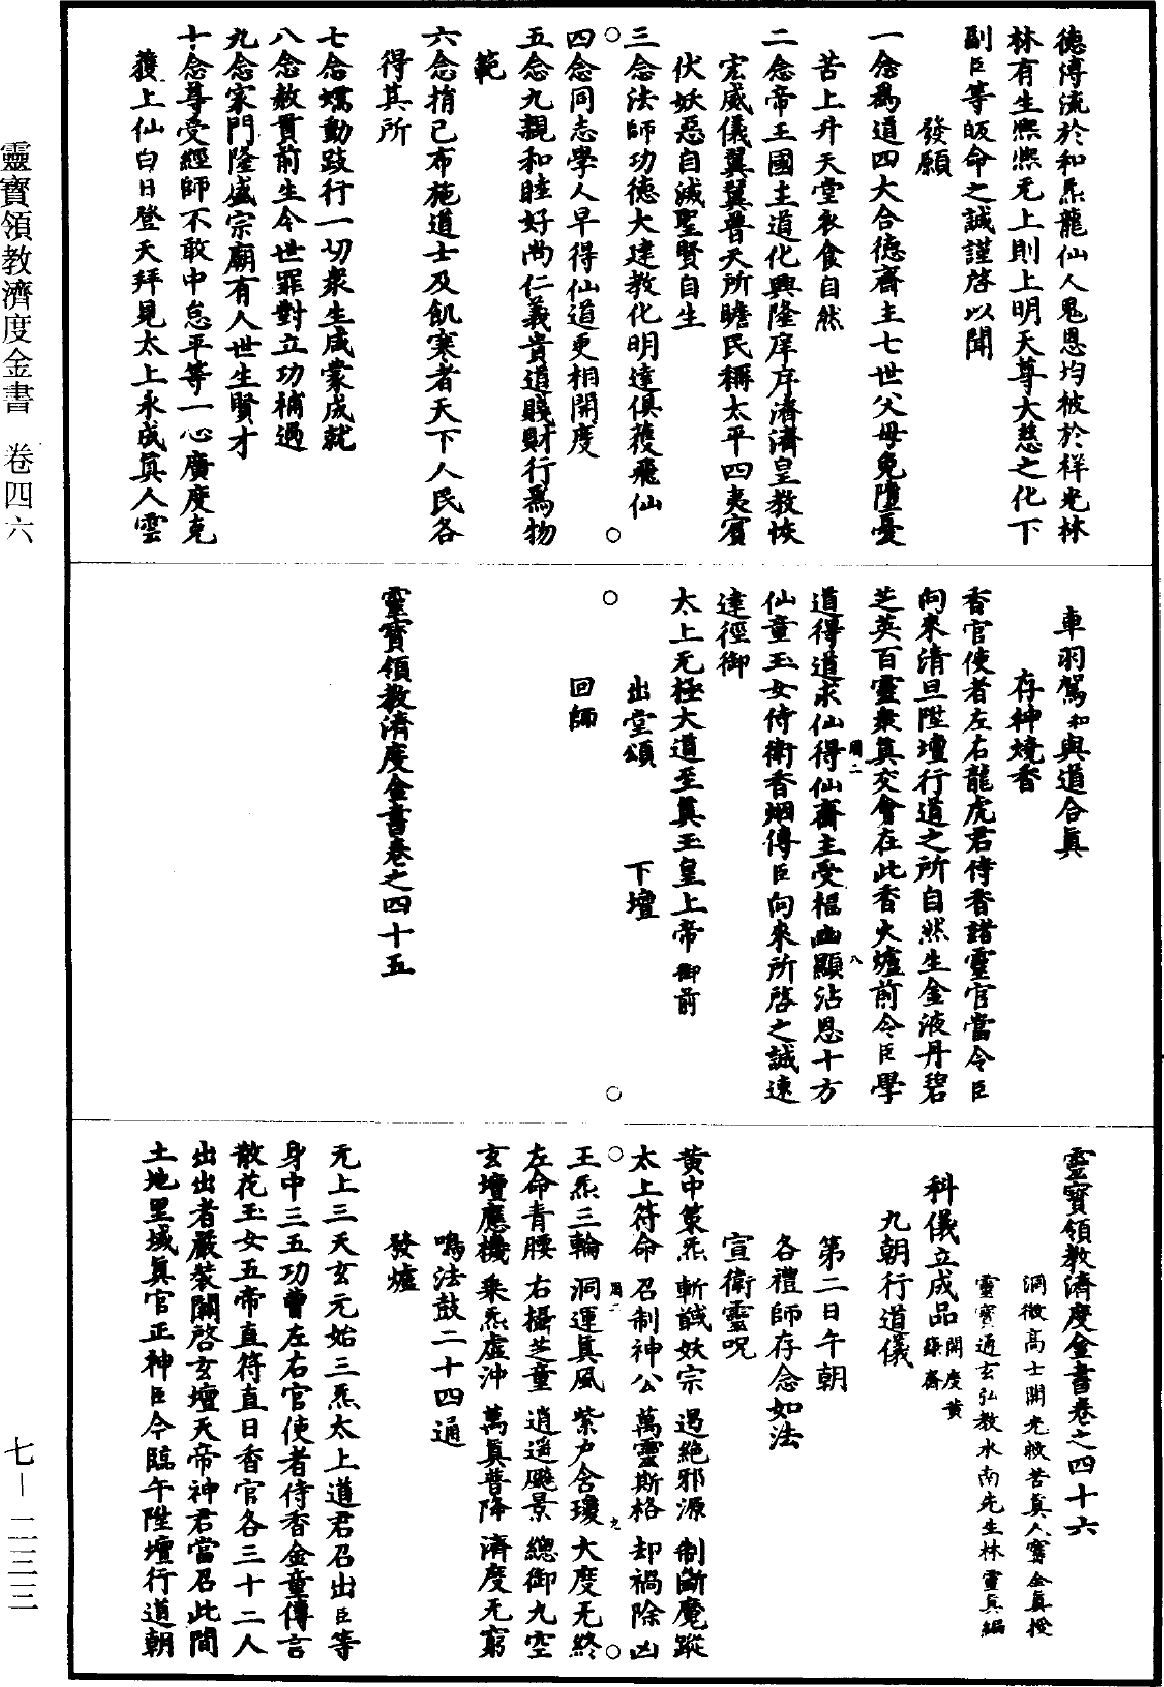 德溥流於和炁龍仙人鬼恩均被於祥光林
林有生熈熈无上則上明天尊大慈之化下
副臣等皈命之誠謹啓以聞
發願
一念爲道四大合德齋主七世父母免墮憂
苦上升天堂衣食自然
二念帝王國主道化興隆庠序濟濟皇教恢
宏威儀翼翼普天所瞻民稱太平四夷賓
伏妖惡自滅聖賢自生
三念法師功德大建教化明達俱獲飛仙
四念同志學人早得仙道更相開度
五念九親和睦好尚仁義貴道賤財行爲物
範
六念損己布施道士及飢寒者天下人民各
得其所
七念蠕動跂行一切衆生咸蒙成就
八念赦貰前生今世罪對立功補過
九念家門隆盛宗廟有人世生賢才
十念尊受經師不敢中怠平等一心廣度克
獲上仙白日登天拜見太上永成眞人雲
車羽駕和與道合眞
存神燒香
香官使者左右龍虎君侍香諸靈官當令臣
向來清旦陞壇行道之所自然生金液丹碧
芝英百靈衆眞交會在此香火爐前令臣學
道得道求仙得仙齋主受福幽顯沾恩十方
仙童玉女侍衛香烟傳臣向來所啓之誠速
達徑御
太上无極大道至眞玉皇上帝御前
出堂頌 下壇
回師
靈寶領教濟度金書卷之四十五
靈寶領教濟度金書卷之四十六
洞微高士開光救苦眞人甯全眞授
靈寶通玄弘教水南先生林靈眞編
科儀立成品開度黃籙齋
九朝行道儀
第二日午朝
各禮師存念如法
宣衛靈呪
黃中策炁 斬馘妖宗 遏絶邪源 制斷魔蹤
太上符命 召制神公 萬靈斯格 却禍除凶
王炁三輪 洞運眞風 紫户含瓊 大度无終
左命青腰 右攝芝童 逍遥飈景 總御九空
玄壇應機 乘炁虚沖 萬眞普降 濟度无窮
鳴法鼓二十四通
發爐
无上三天玄元始三炁太上道君召出臣等
身中三五功曹左右官使者侍香金童傳言
散花玉女五帝直符直日香官各三十二人
出出者嚴裝關啓玄壇天帝神君當召此間
土地里域眞官正神臣今臨午陞壇行道朝
靈寶領教濟度金書 卷四六
七—二三三